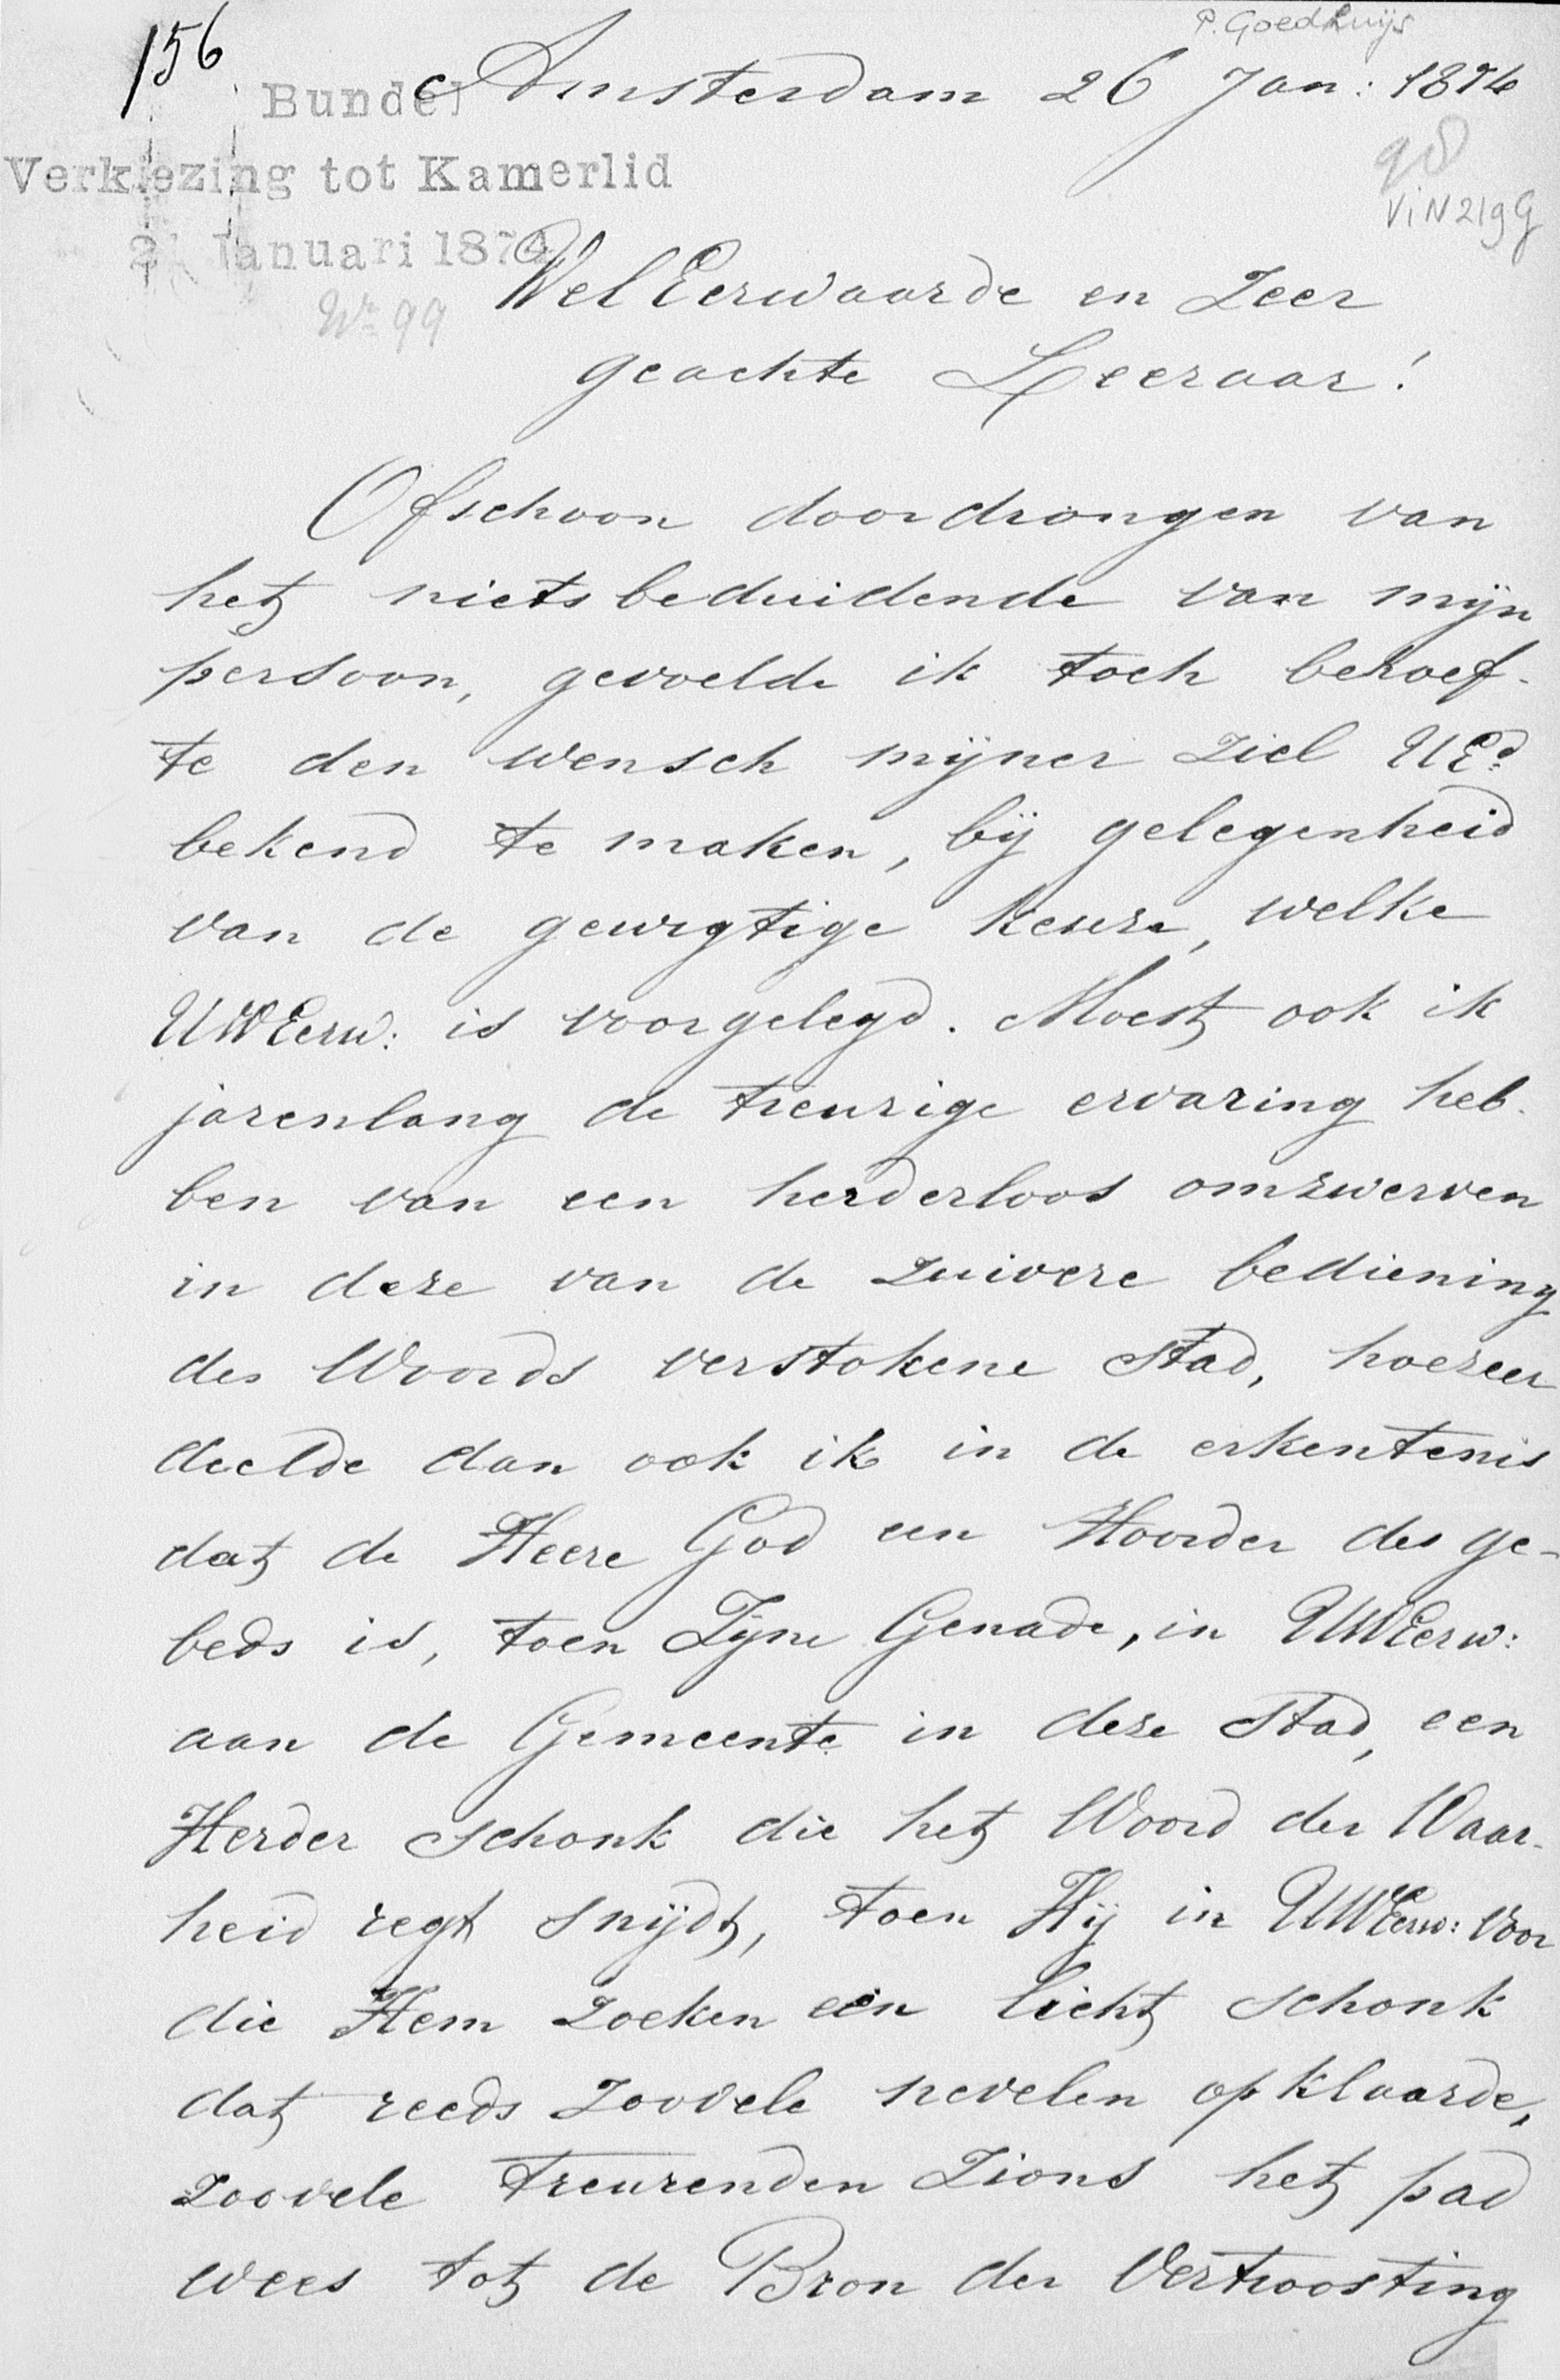 P. Goedhuijs
156
Bundel
Amsterdam 26 Jan: 1874
Verkiezing tot Kamerlid
98
ViN219g
21 Januari 1874
No 99
WelEerwaarde en Zeer
geachte Leeraar!
Ofschoon doordrongen van
het nietsbeduidende van mijn
persoon, gevoelde ik toch behoef-
te den wensch mijner ziel UEd:
bekend te maken, bij gelegenheid
van de gewigtige keuze, welke
UWEerw: is voorgelegd. Moest ook ik
jarenlang de treurige ervaring heb-
ben van een herderloos omzwerven
in deze van de zuivere bediening
des Woords verstokene stad, hoezeer
deelde dan ook ik in de erkentenis
dat de Heere God een Hoorder des ge-
beds is, toen Zijne Genade, in UWEerw:
aan de Gemeente in deze stad, een
Herder schonk die het Woord der Waar-
heid regt snijdt, toen Hij in UWEerw: voor
die Hem zoeken een licht schonk
dat reeds zoovele nevelen opklaarde,
zoovele treurenden Zions het pad
wees tot de Bron der Vertroosting